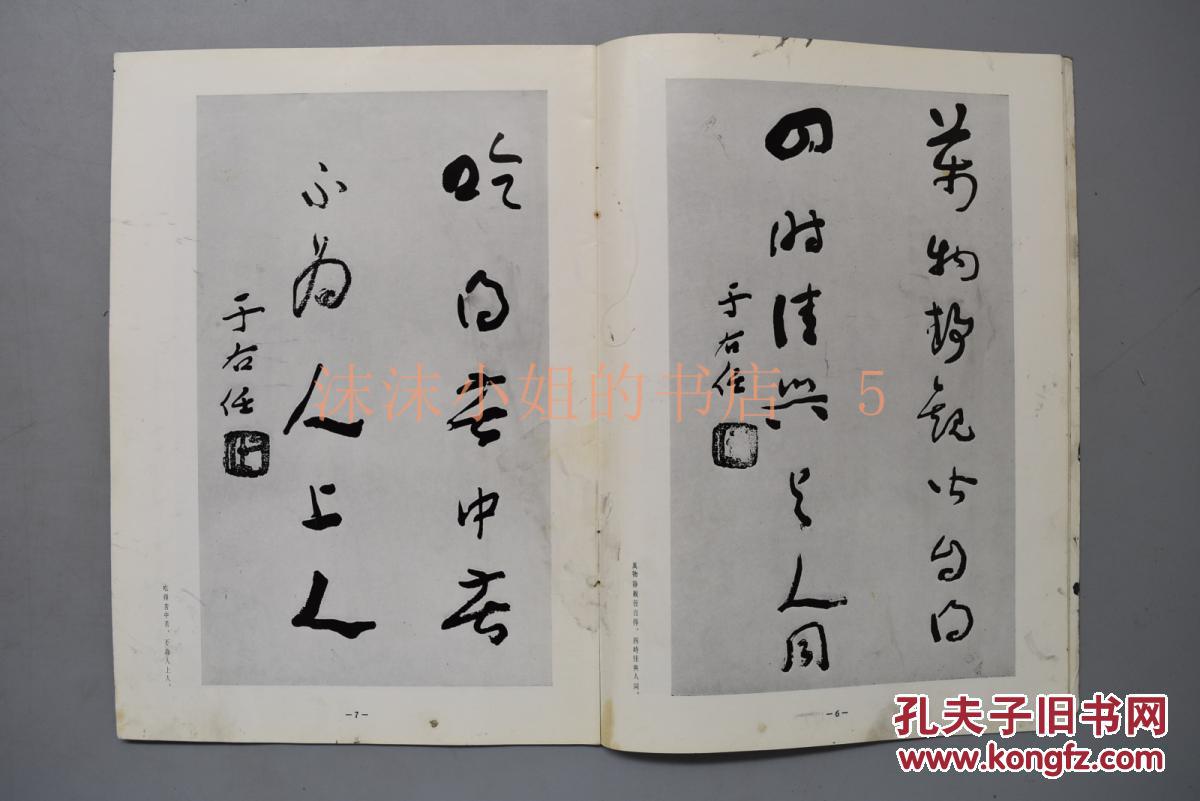 萬物靜觀皆自得
四時佳興与人同
于右任
萬物靜觀皆自得，四時佳興人同。
—6—
吃得苦中苦
不為人上人
于右任
吃得苦中苦，不為人上人。
—7—
沫沫小姐的书店 5
孔夫子旧书网
www.kongfz.com